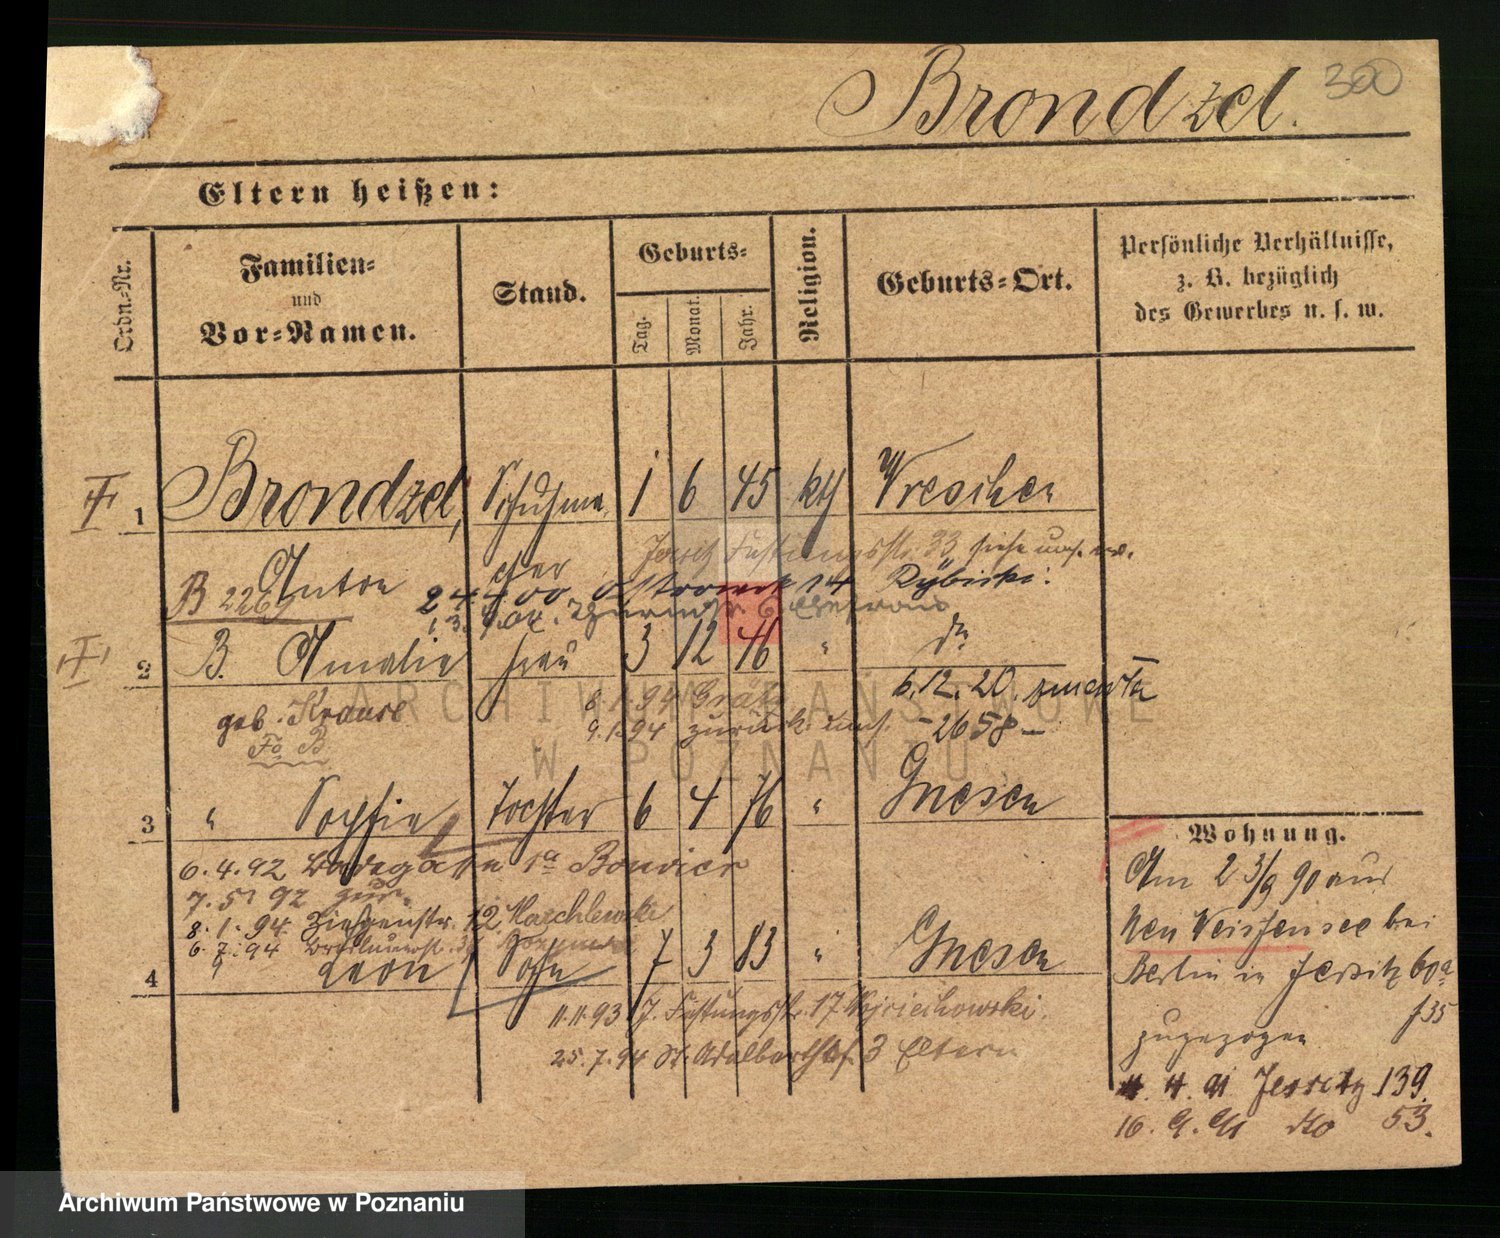 Brondzel. 300
Eltern heißen:
Ordn.-Nr.
Familien-
und
Vor-Namen.
Stand.
Geburts-
Tag.
Monat.
Jahr.
Religion.
Geburts-Ort.
Persönliche Verhältnisse,
z. B. bezüglich
des Gewerbes u. s. w.
1 Brondzel, Schuhma- 1 6 45 kth Wreschen
Anton cher
Josef Festungsstr. 33 siehe
B 2269 24.4.00 Ostrowek 14 Rybicki.
2 B. Amalie Frau 3 12 46 " do
6.12.20. zmarła
geb. Krause 8.1.94 Grätz
9.1.94 zurück - 2658 -
Fo B
3 " Sophie Tochter 6 4 76 " Gnesen
6.4.92 1a Bouvier
7.5.92 zur.
8.1.94 Ziegenstr. 12
6.7.94
4 " Leon Sohn 7 3 83 " Gnesen
11.11.93 J. Festungsstr. 17 Wojciechowski.
25.7.94 St. Adalberthof. 3 Eltern
Wohnung.
Am 23/9 90 aus
Neu Weissensee bei
Berlin in Jersitz 60a
zugezogen f 35
4. 4. 91 Jersitz 139.
16. 9. 91 dto 53.
ARCHIWUM PAŃSTWOWE
W POZNANIU
Archiwum Państwowe w Poznaniu